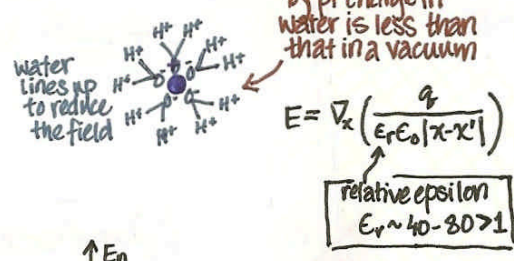 water is less than
that in a vacuum
water
lines up
to reduce
the field
H⁺ H⁺ H⁺
H⁺ H⁺
H⁺ O⁻ O⁻ O⁻ H⁺
H⁺ O⁻ O⁻ H⁺
H⁺ H⁺
E = ∇ₓ(q / εᵣε₀|x-x'|)
relative epsilon
εᵣ ~ 40-80 > 1
↑ En